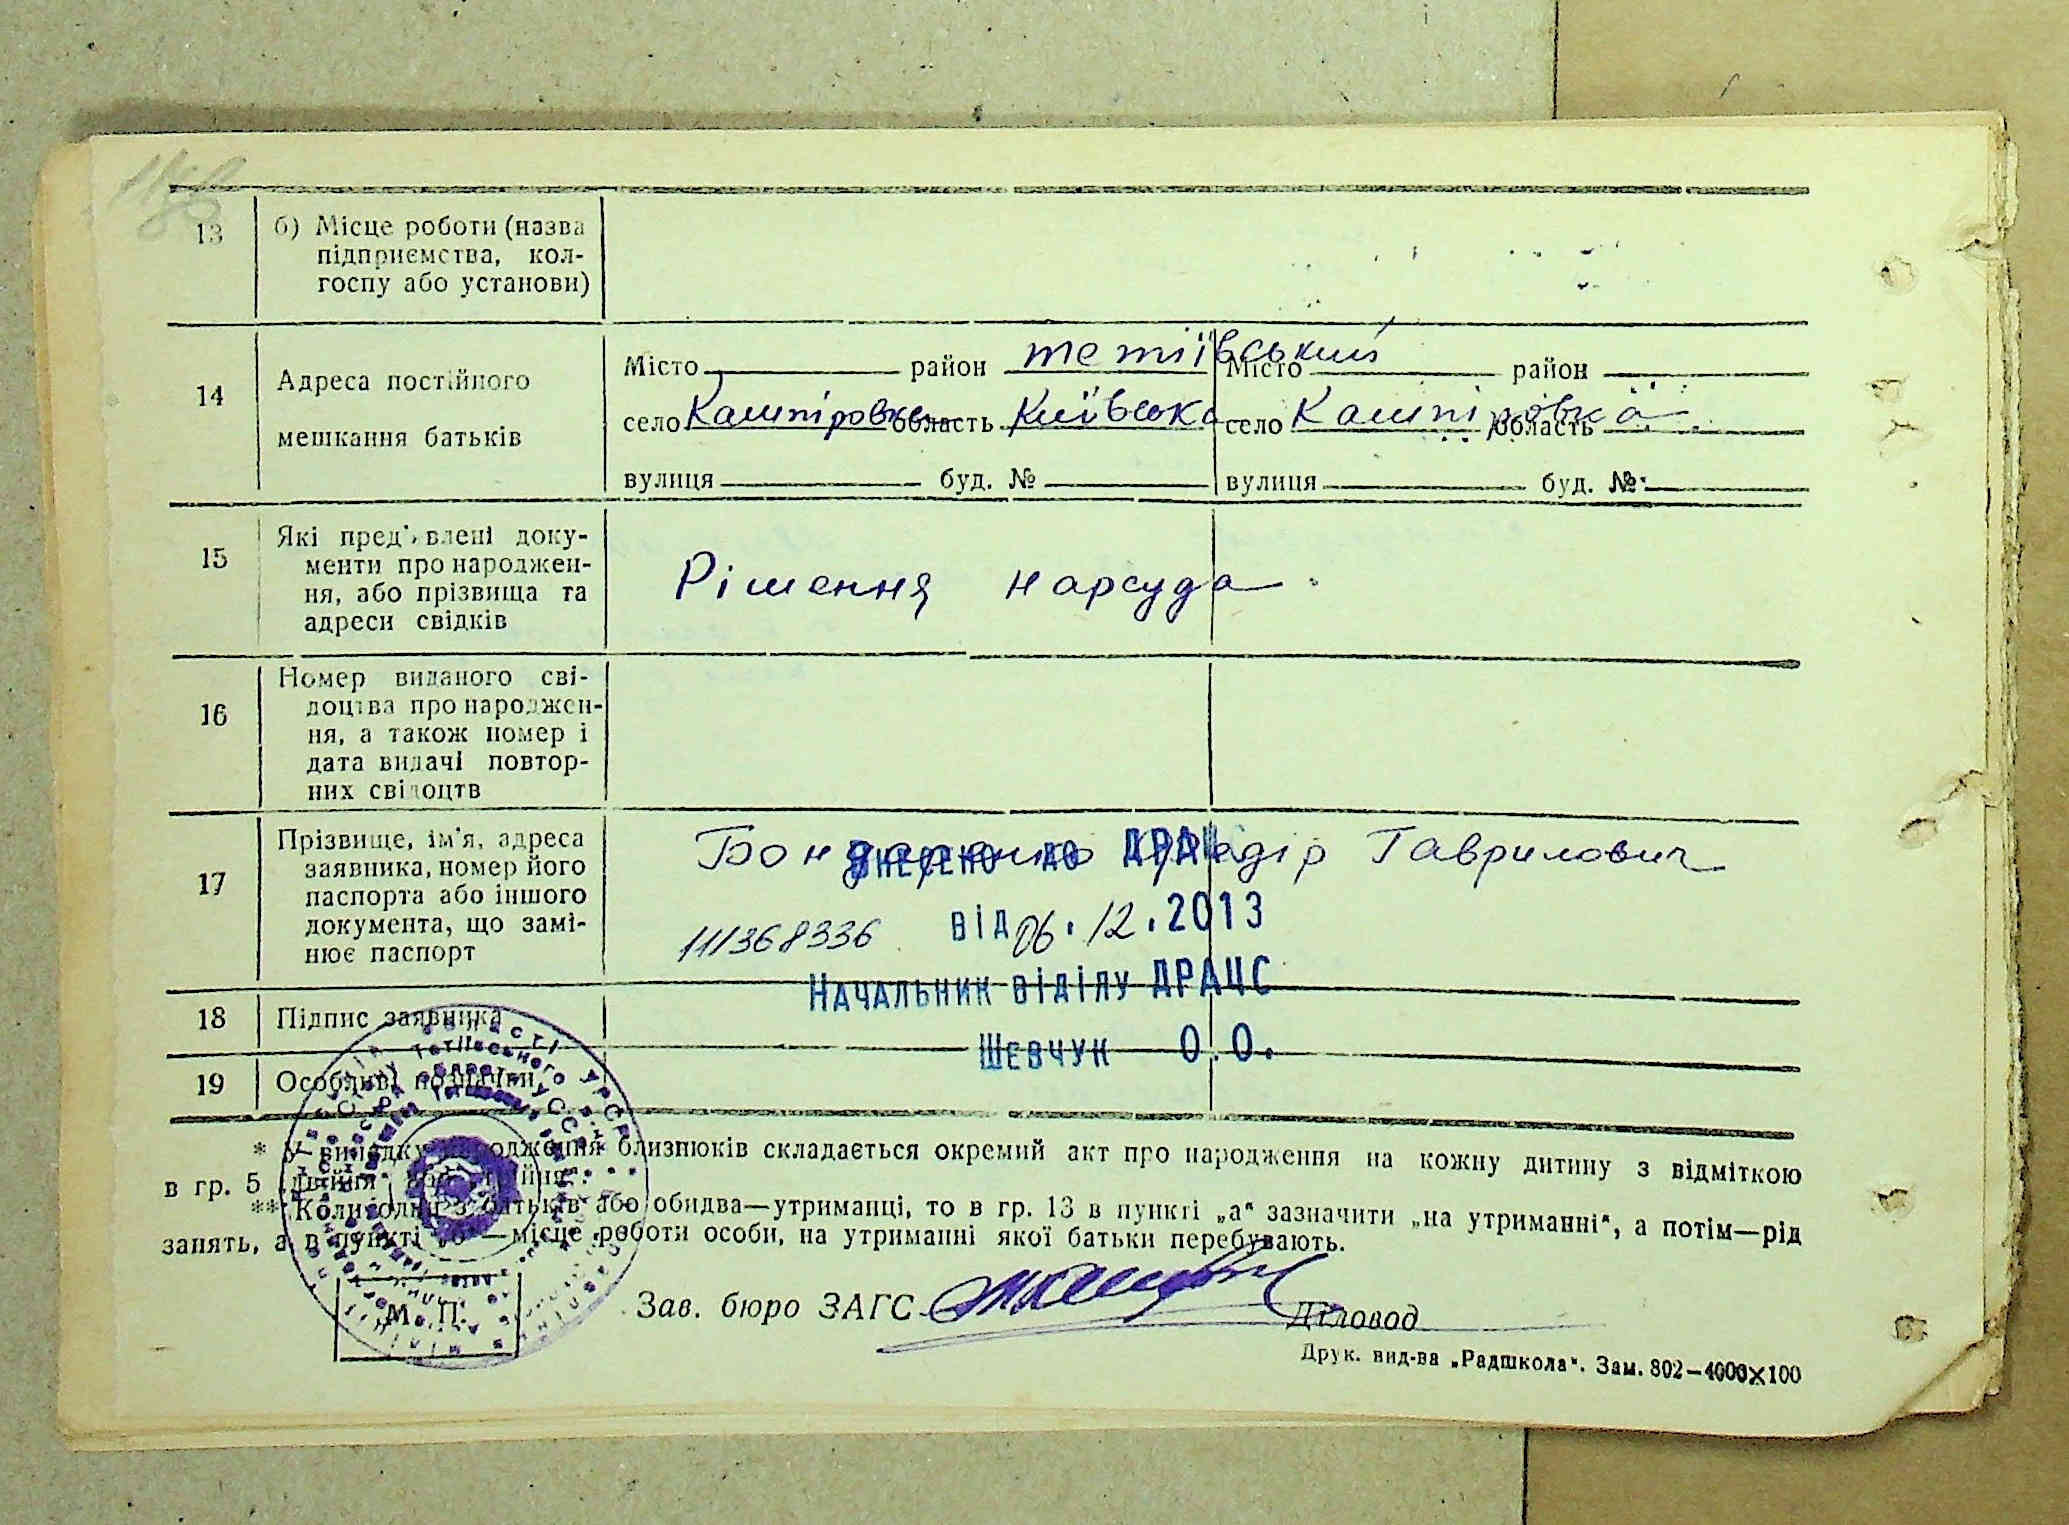 13
б) Місце роботи (назва
підприємства, кол-
госпу або установи)
14
Адреса постійного
мешкання батьків
Місто район тетіївський Місто район
село Кашпіровка область Київська село Кашпіровка область
вулиця буд. № вулиця буд. №
15
Які пред'явлені доку-
менти про народжен-
ня, або прізвища та
адреси свідків
Рішення нарсуда
16
Номер виданого сві-
доцтва про народжен-
ня, а також номер і
дата видачі повтор-
них свідоцтв
17
Прізвище, ім'я, адреса
заявника, номер його
паспорта або іншого
документа, що замі-
нює паспорт
Бондаренко Гаврилович
Внесено до ДРАЦС
111368336 від 06.12.2013
Начальник відділу ДРАЦС
Шевчук О.О.
18
Підпис заявника
19
Особливі позначки
* У випадку народження близнюків складається окремий акт про народження на кожну дитину з відміткою
в гр. 5 „двійня" або „трійня".
** Коли один з батьків або обидва—утриманці, то в гр. 13 в пункті „а" зазначити „на утриманні", а потім—рід
занять, а в пункті „б"—місце роботи особи, на утриманні якої батьки перебувають.
М. П.
Зав. бюро ЗАГС Діловод
Друк. вид-ва „Радшкола". Зам. 802—4000×100